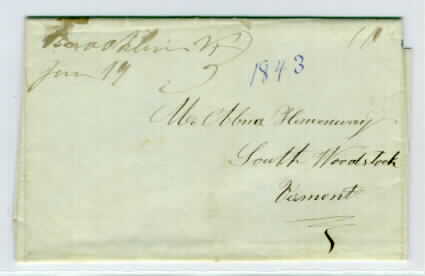 Brookline Vt 10
Jan 19 1843
Mr Abner Hemenway
South Woodstock
Vermont